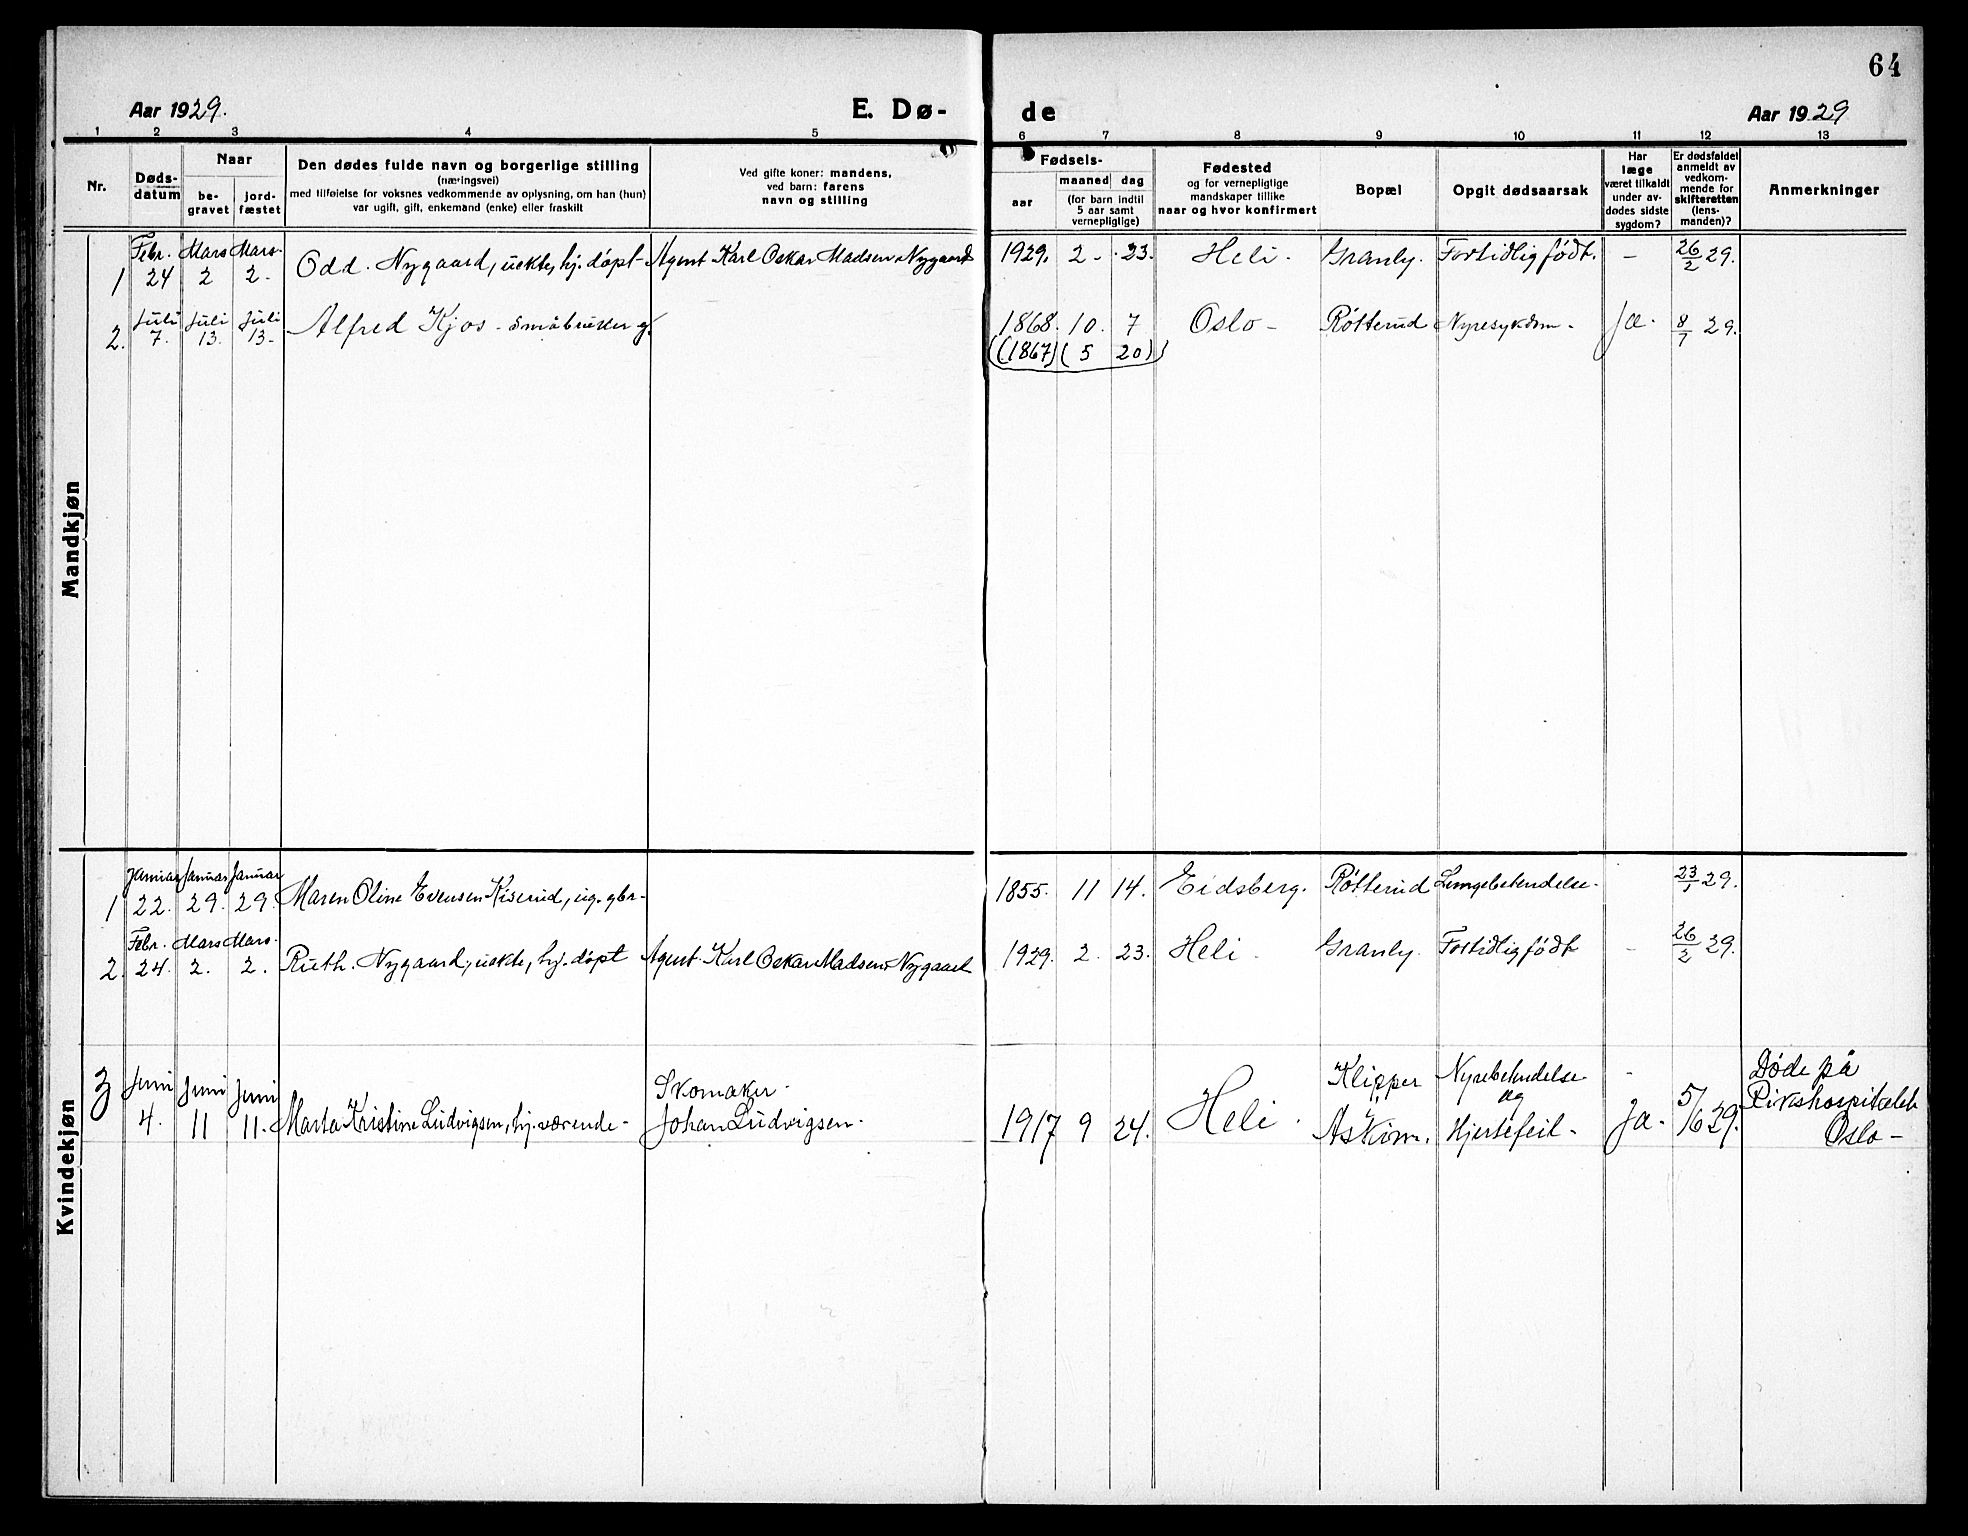 64
Aar 1929.
E. Dø-
de
Aar 1929
1 2 3 4 5 6 7 8 9 10 11 12 13
Nr.
Døds-
datum
Naar
be-
gravet
jord-
fæstet
Den dødes fulde navn og borgerlige stilling
(næringsvei)
med tilføielse for voksnes vedkommende av oplysning, om han (hun)
var ugift, gift, enkemand (enke) eller fraskilt
Ved gifte koner: mandens,
ved barn: farens
navn og stilling
Fødsels-
aar
maaned dag
(for barn indtil
5 aar samt
vernepligtige)
Fødested
og for vernepligtige
mandskaper tillike
naar og hvor konfirmert
Bopæl
Opgit dødsaarsak
Har
læge
været tilkaldt
under av-
dødes sidste
sygdom?
Er dødsfaldet
anmeldt av
vedkom-
mende for
skifteretten
(lens-
manden)?
Anmerkninger
Mandkjøn
Febr. Mars Mars
1 24 2 2- Odd. Nygaard, uekte, hj. døpt- Agent Karl Oskar Madsen Nygaard 1929. 2- 23. Heli- Granly. Fortidlig født. - 26/2 29.
Juli Juli Juli
2. 7. 13. 13- Alfred Kjos - småbruker g. 1868. 10. 7 Oslo- Røtterud Nyresykdom- Ja- 8/7 29.
(1867) (5 20)
Kvindekjøn
Januar Januar Januar
1 22. 29. 29. Maren Oline Evensen Kiserud, ug. gbr- 1855. 11 14. Eidsberg. Røtterud Lungebetendelse- 23/1 29.
Febr. Mars Mars.
2. 24. 2. 2. Ruth. Nygaard, uekte, hj. døpt Agent Karl Oskar Madsen Nygaard 1929. 2. 23. Heli- Granly. Fortidlig født - 26/2 29.
3 Juni Juni Juni Skomaker- Klipper Nyrebetendelse - Døde på
og
4. 11 11. Marta Kristine Ludvigsen, hj. værende- Johan Ludvigsen- 1917 9 24. Heli. Askim. Hjertefeil- Ja- 5/6 29. Rikshospitalet
Oslo-